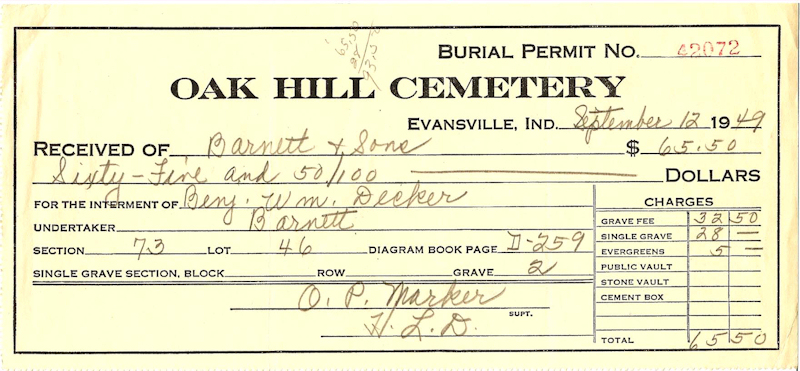 65.50
28
93.50
BURIAL PERMIT NO. 42072
OAK HILL CEMETERY
EVANSVILLE, IND. September 12 1949
RECEIVED OF Barnett & Sons $ 65.50
Sixty-Five and 50/100 DOLLARS
FOR THE INTERMENT OF Benj. Wm. Decker
UNDERTAKER Barnett
SECTION 73 LOT 46 DIAGRAM BOOK PAGE D-259
SINGLE GRAVE SECTION, BLOCK ROW GRAVE 2
O. P. Marker
SUPT.
H. L. D.
CHARGES
GRAVE FEE 32 50
SINGLE GRAVE 28 —
EVERGREENS 5 —
PUBLIC VAULT
STONE VAULT
CEMENT BOX
TOTAL 65 50